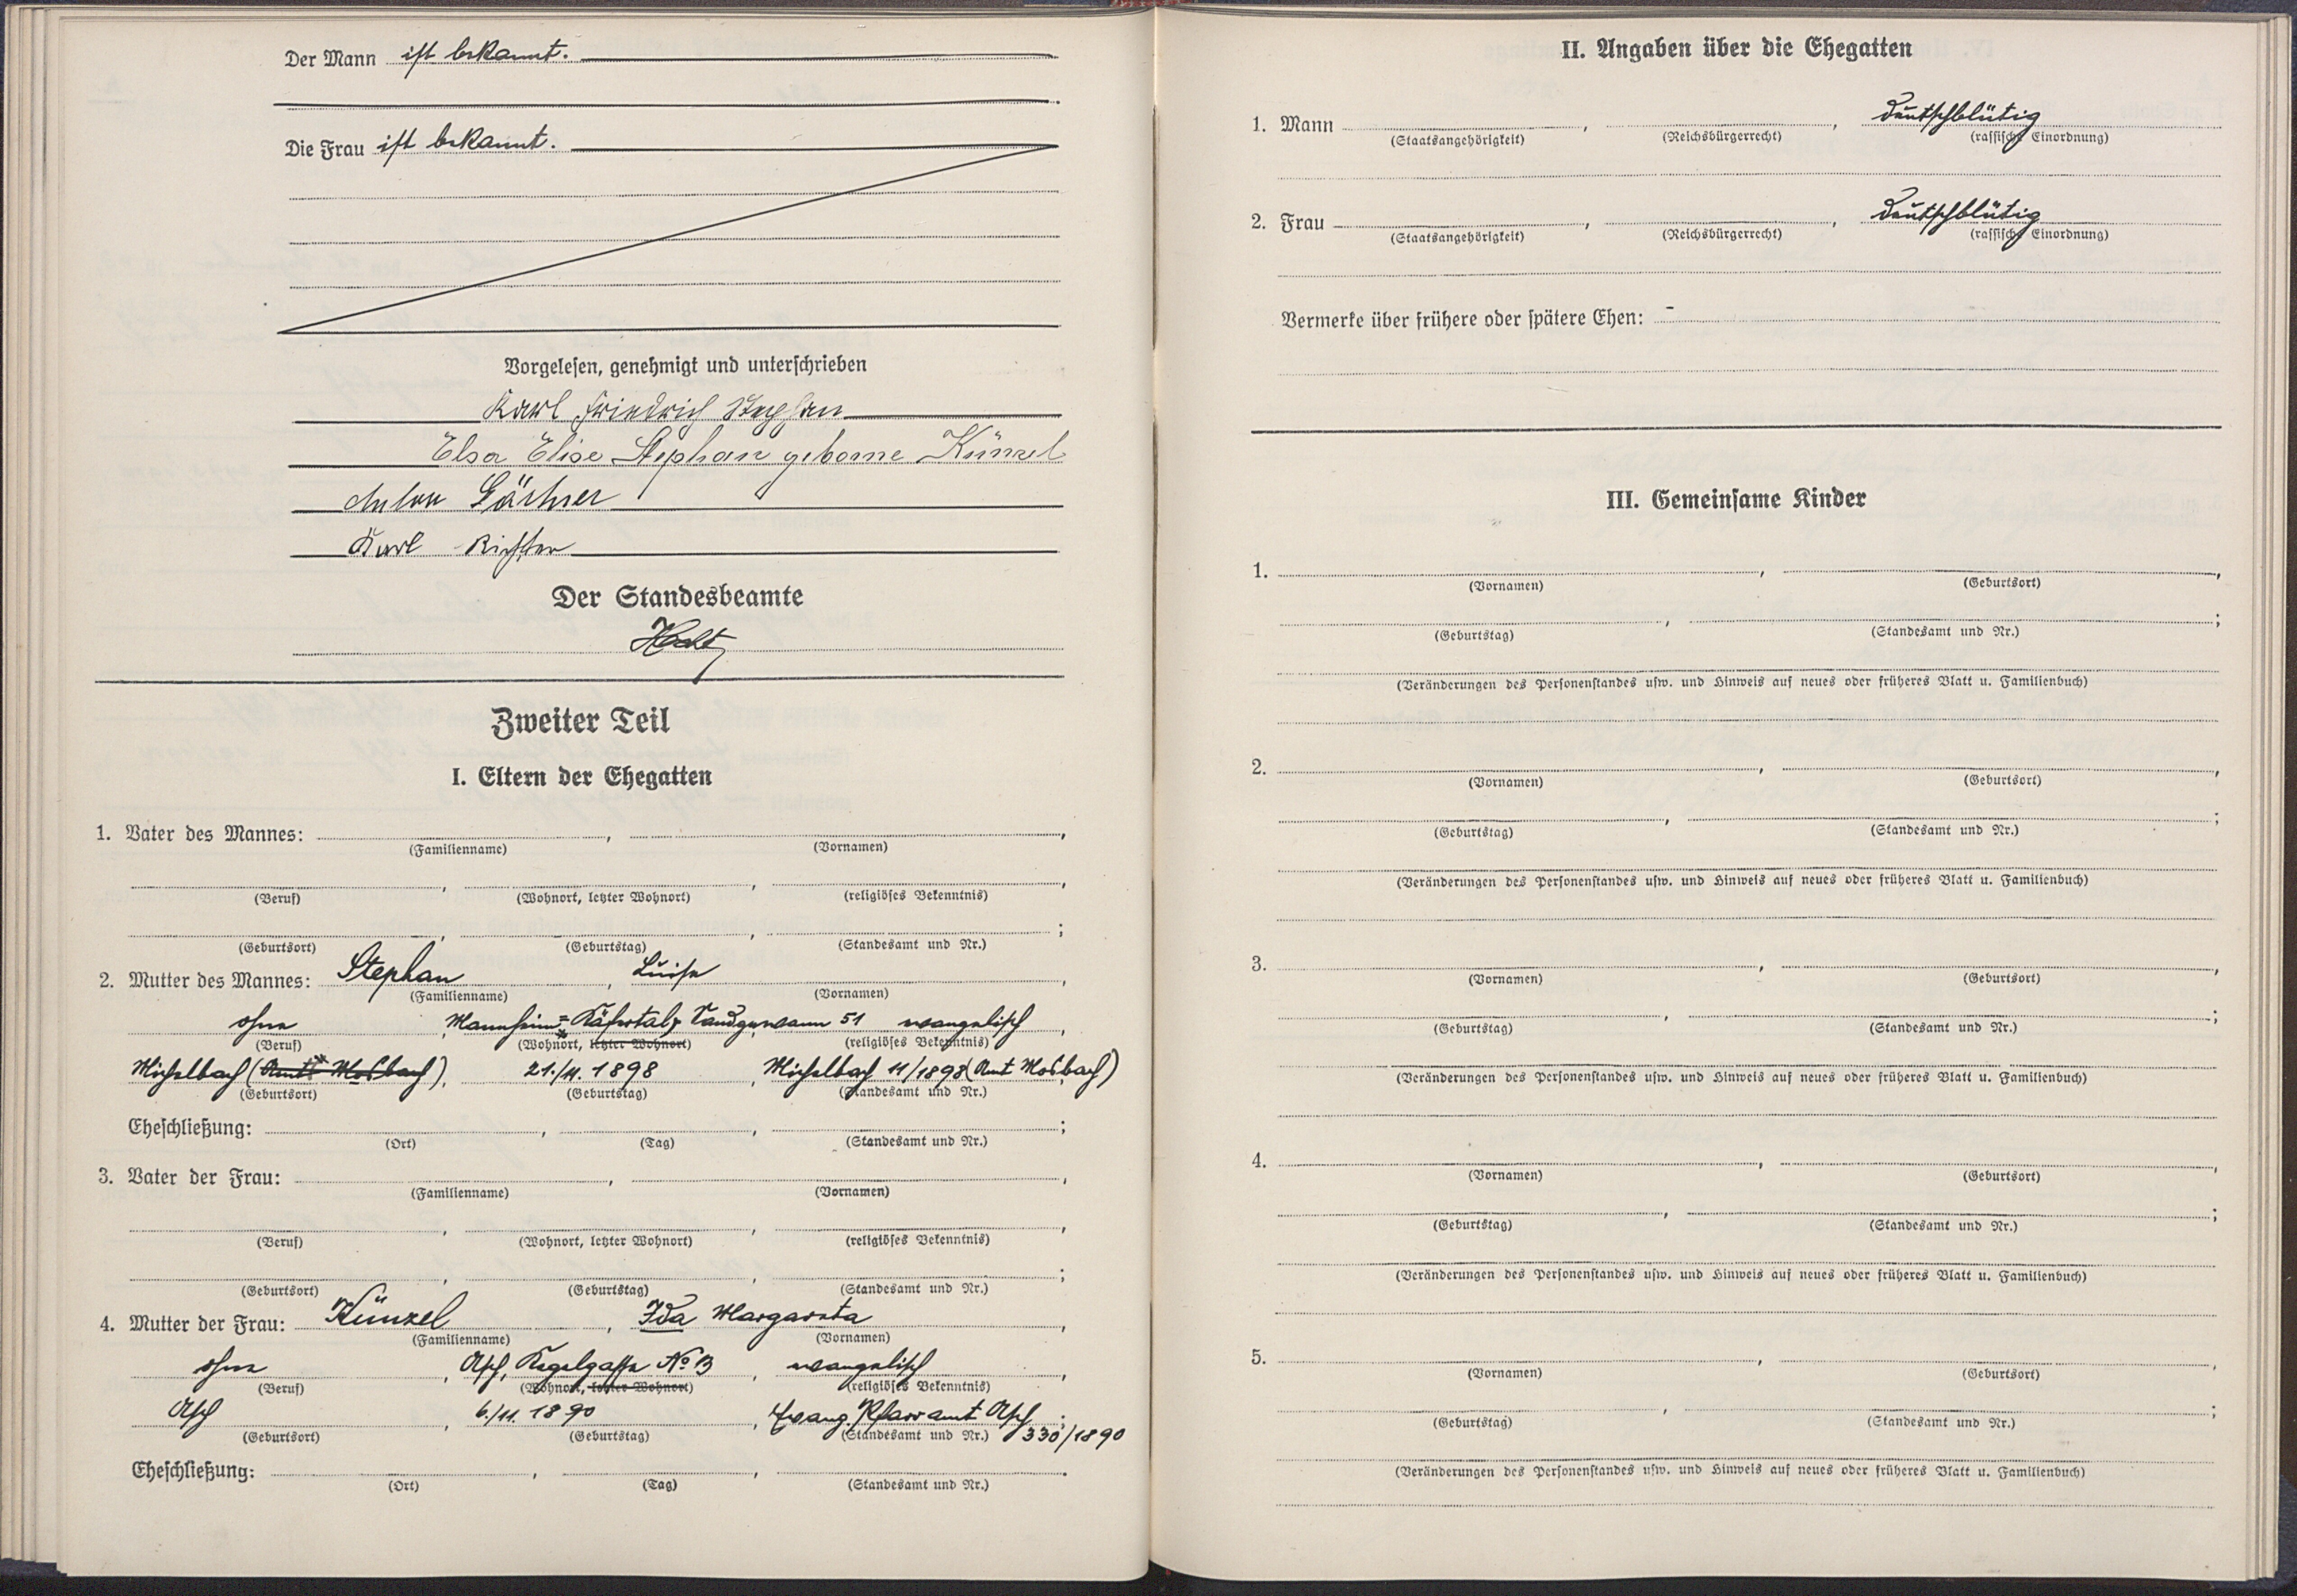 Der Mann ist bekannt.
Die Frau ist bekannt.
Vorgelesen, genehmigt und unterschrieben
Karl Friedrich Stephan
Elsa Elise Stephan geborne Künzel
Anton
Karl Richter
Der Standesbeamte
Zweiter Teil
I. Eltern der Ehegatten
1. Vater des Mannes: , ,
(Familienname) (Vornamen)
, , ,
(Beruf) (Wohnort, letzter Wohnort) (religiöses Bekenntnis)
, , ;
(Geburtsort) (Geburtstag) (Standesamt und Nr.)
2. Mutter des Mannes: Stephan , Luise ,
(Familienname) (Vornamen)
ohne , Mannheim-Käfertal, Sandgewann 51 evangelisch ,
(Beruf) (Wohnort, letzter Wohnort) (religiöses Bekenntnis)
Michelbach (Amt Mosbach), 21./11. 1898 , Michelbach 11/1898 (Amt Mosbach)
(Geburtsort) (Geburtstag) (Standesamt und Nr.)
Eheschließung: , , ;
(Ort) (Tag) (Standesamt und Nr.)
3. Vater der Frau: , ,
(Familienname) (Vornamen)
, , ,
(Beruf) (Wohnort, letzter Wohnort) (religiöses Bekenntnis)
, , ;
(Geburtsort) (Geburtstag) (Standesamt und Nr.)
4. Mutter der Frau: Künzel , Ida Margareta ,
(Familienname) (Vornamen)
ohne , Asch, Kegelgasse No 13 , evangelisch ,
(Beruf) (Wohnort, letzter Wohnort) (religiöses Bekenntnis)
Asch , 6./11. 1890 , Evang. Pfarramt Asch ;
(Geburtsort) (Geburtstag) (Standesamt und Nr.) 330/1890
Eheschließung: , , .
(Ort) (Tag) (Standesamt und Nr.)
II. Angaben über die Ehegatten
1. Mann , , deutschblütig
(Staatsangehörigkeit) (Reichsbürgerrecht) (rassische Einordnung)
2. Frau , , deutschblütig
(Staatsangehörigkeit) (Reichsbürgerrecht) (rassische Einordnung)
Vermerke über frühere oder spätere Ehen: -
III. Gemeinsame Kinder
1. , ,
(Vornamen) (Geburtsort)
, ;
(Geburtstag) (Standesamt und Nr.)
(Veränderungen des Personenstandes usw. und Hinweis auf neues oder früheres Blatt u. Familienbuch)
2. , ,
(Vornamen) (Geburtsort)
, ;
(Geburtstag) (Standesamt und Nr.)
(Veränderungen des Personenstandes usw. und Hinweis auf neues oder früheres Blatt u. Familienbuch)
3. , ,
(Vornamen) (Geburtsort)
, ;
(Geburtstag) (Standesamt und Nr.)
(Veränderungen des Personenstandes usw. und Hinweis auf neues oder früheres Blatt u. Familienbuch)
4. , ,
(Vornamen) (Geburtsort)
, ;
(Geburtstag) (Standesamt und Nr.)
(Veränderungen des Personenstandes usw. und Hinweis auf neues oder früheres Blatt u. Familienbuch)
5. , ,
(Vornamen) (Geburtsort)
, ;
(Geburtstag) (Standesamt und Nr.)
(Veränderungen des Personenstandes usw. und Hinweis auf neues oder früheres Blatt u. Familienbuch)